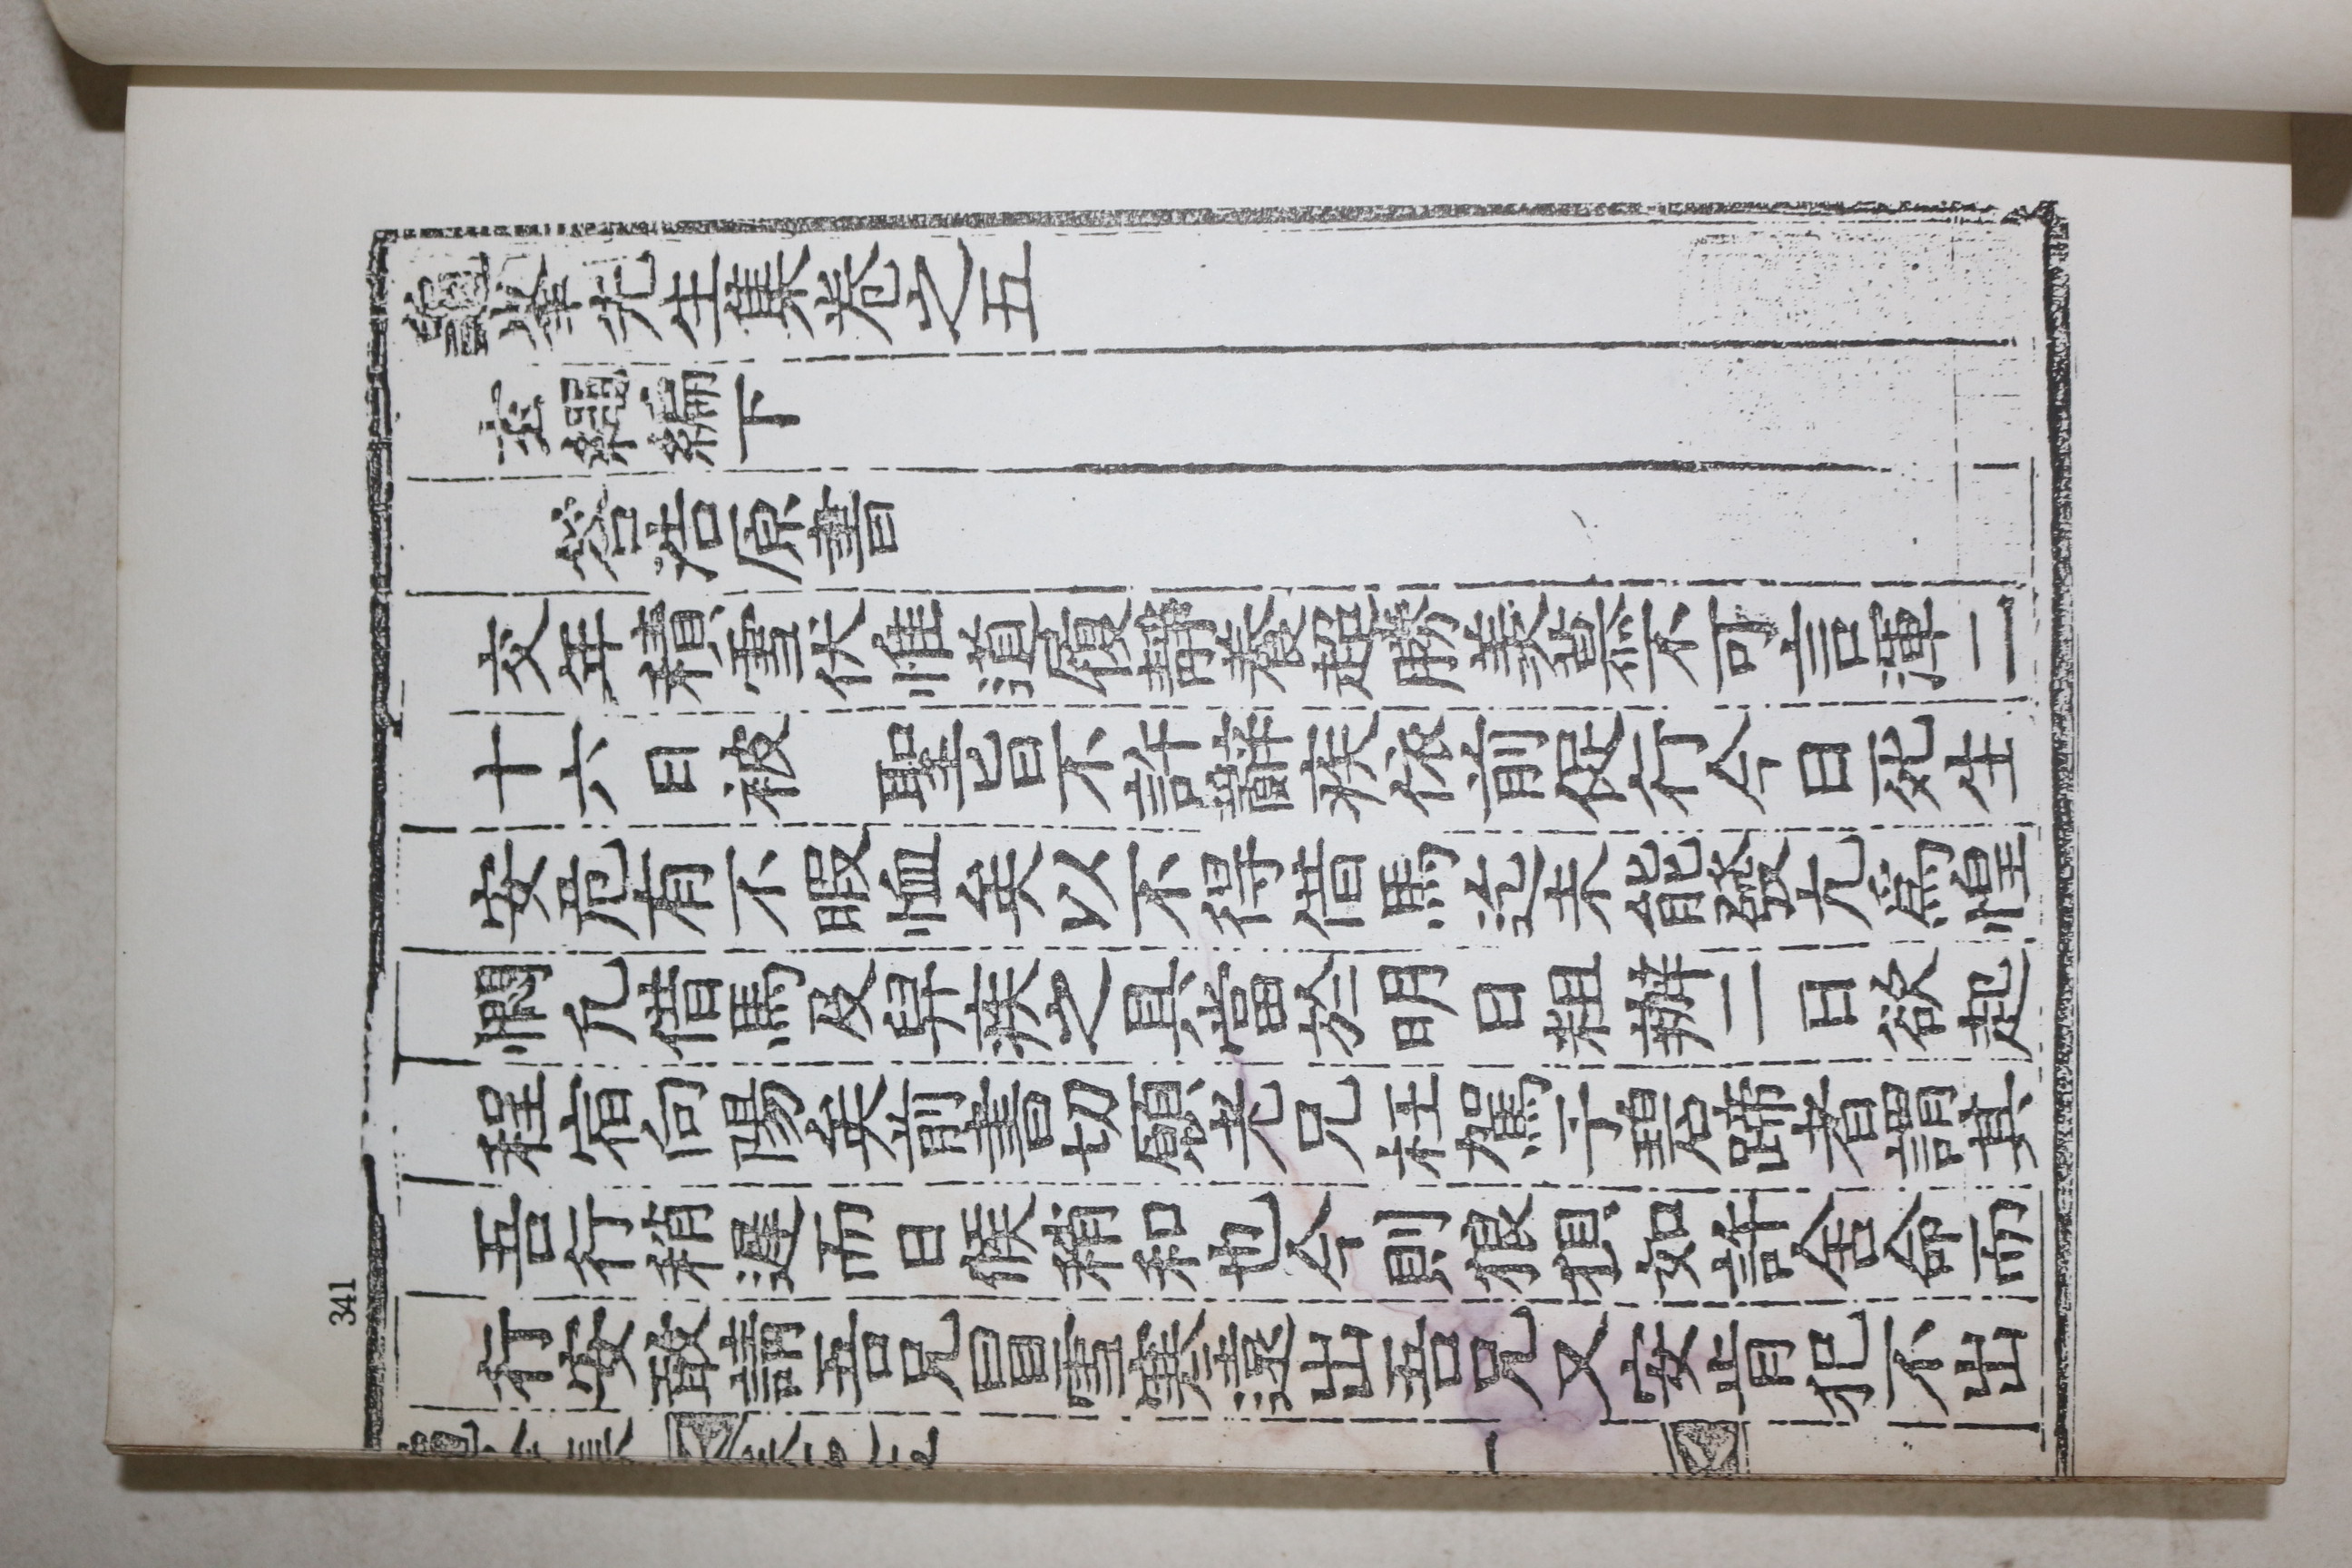 龜峯先生集卷之五
玄繩編下
答浩原書
交年積雪伏惟道履靜養超勝羨煞不可言渾二
十六日被 聖旨不許辭疾前促行今日死生
安危有不暇恤矣以不得借馬況未能發尤爲惶
憫允借馬及舁疾之具當於明日粗辦一日欲起
程宿向陽矣前書切願老兄枉駕于蹄者謂其
吾行稍遲而日候稍和也今則狼狽如許舍命而
行故敢請吾兄冒雪寒出吾兄又故犯不出
341